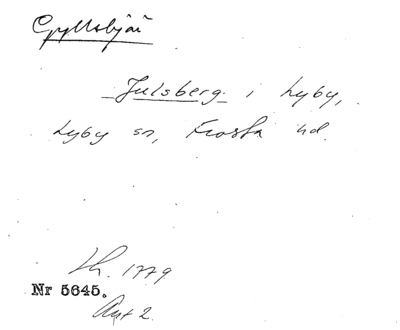 Gyllsbjär
Julsberg i Lyby,
Lyby sn, Frosta hd.
Lh. 1779
Nr 5645.
Akt 2.